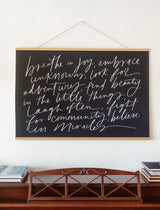 breathe in joy, embrace
unknowns, look for
adventures find beauty
in the little things,
laugh often, fight
for community believe
in miracles